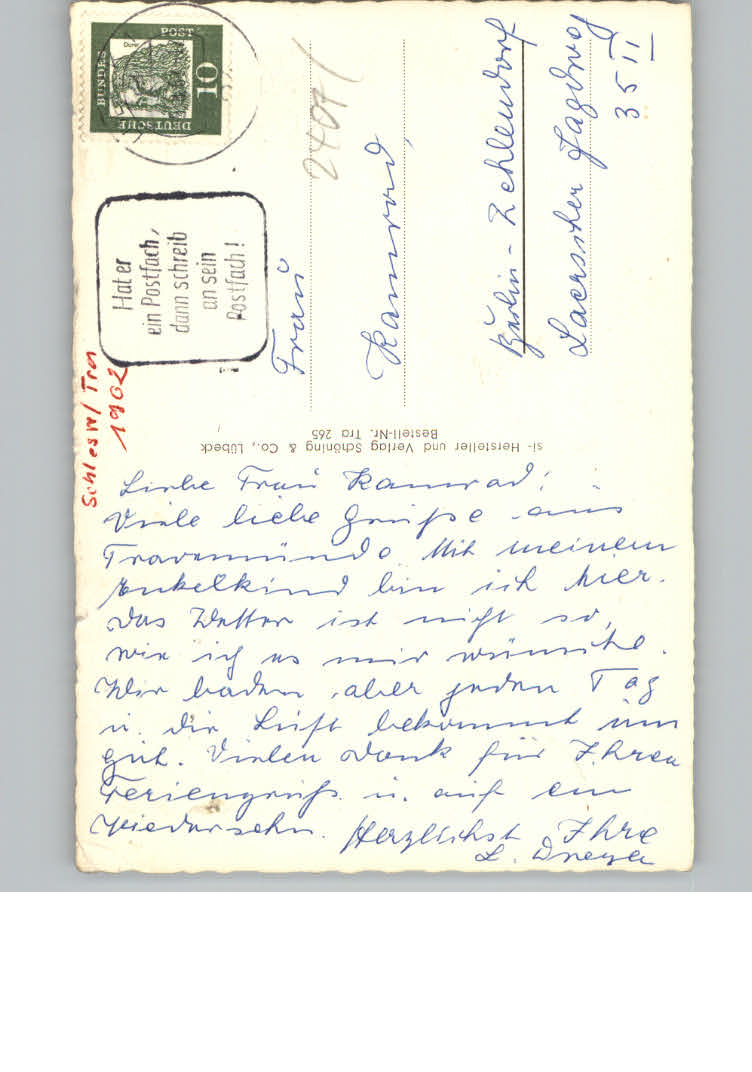 DEUTSCHE
BUNDES
POST
10
Hat er
ein Postfach,
dann schreib
an sein
Postfach!
2407/
Frau
Kamrad,
Berlin-Zehlendorf
Jagdweg
35 II
Schlesw/Tra
1902
si- Hersteller und Verlag Schöning & Co., Lübeck
Bestell-Nr. Tra 265
Liebe Frau Kamrad!
Viele liebe Grüße aus
Travemünde. Mit meinem
Enkelkind bin ich hier.
Das Wetter ist nicht so,
wie ich es mir wünsche.
Wir baden aber jeden Tag
u. die Luft bekommt uns
gut. Vielen Dank für Ihren
Feriengruß u. auf ein
Wiedersehn. Herzlichst Ihre
L. Dreyer